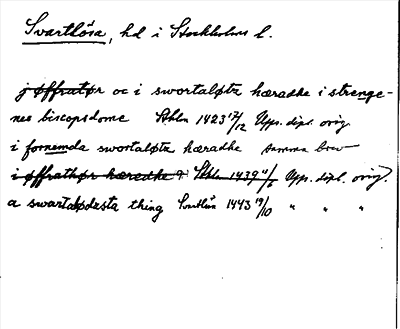 Svartlösa, hd i Stockholms l.
j øffratør oc i swortaløta hæradhe i strenge-
nes biscopsdome Sthlm 1423 17/12 Upps. dipl. orig
i fornemda swortaløta hæradhe samma brev
i øffrathør hæredhe Sthlm 1439 11/6 Upps. dipl. orig.
a swartaløsasta thing 1443 19/10 " " "